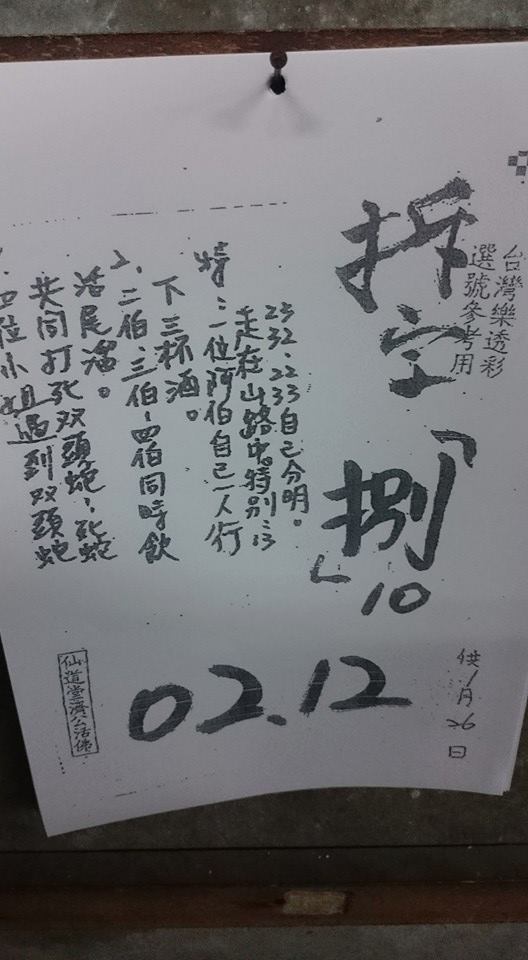 台灣樂透彩
選號參考用
拆字「捌」10
供1月26日
02.12
特:一位阿伯自己一人行
走在山路中特別:13
25
32、22
37、33自己分明。
2、二伯、三伯、四伯同時飲
下三杯酒。
共同打死双頭蛇,死蛇
活尾溜。
四位小姐遇到双頭蛇
仙道堂濟公活佛